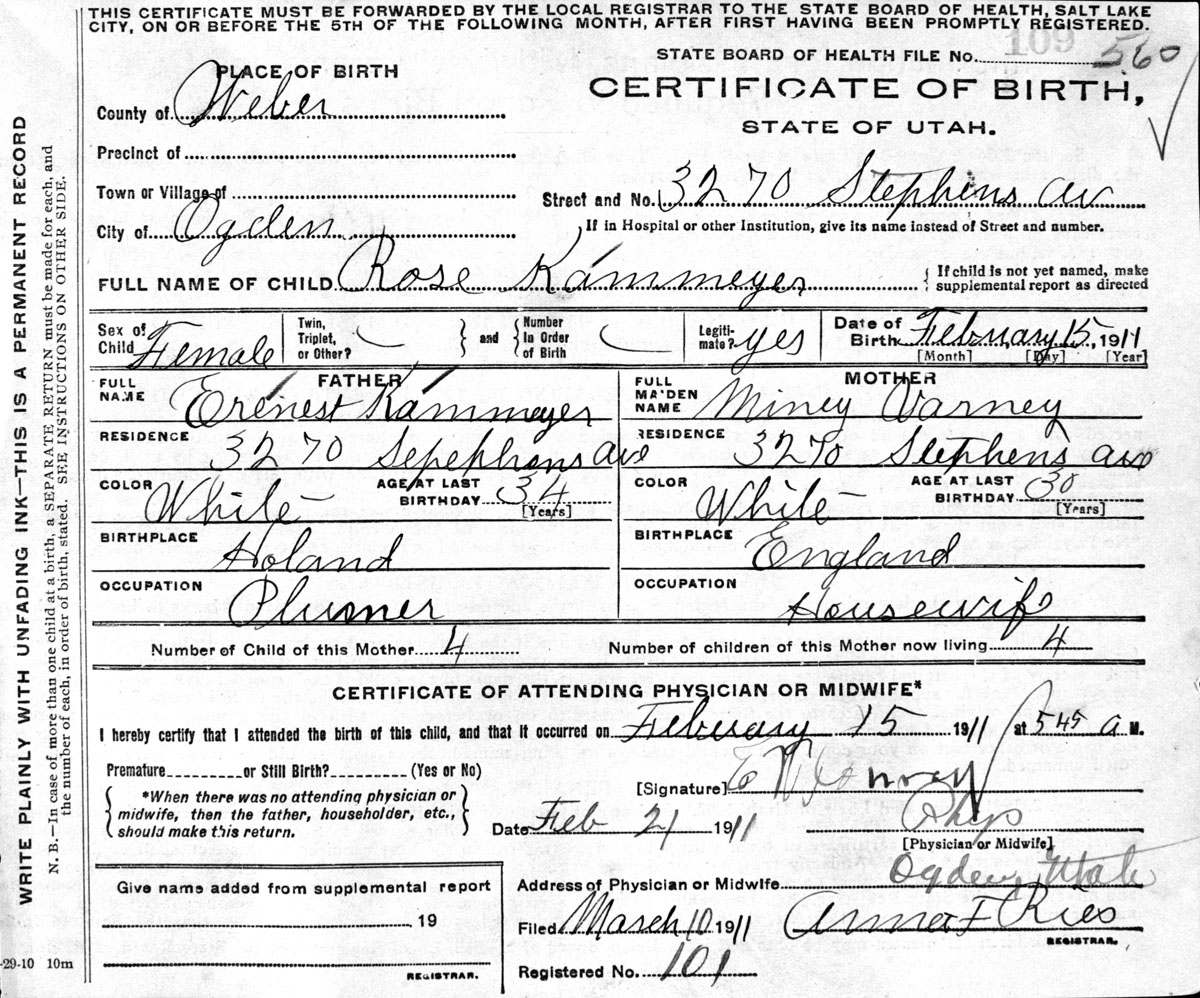 THIS CERTIFICATE MUST BE FORWARDED BY THE LOCAL REGISTRAR TO THE STATE BOARD OF HEALTH, SALT LAKE
CITY, ON OR BEFORE THE 5TH OF THE FOLLOWING MONTH, AFTER FIRST HAVING BEEN PROMPTLY REGISTERED.
109
STATE BOARD OF HEALTH FILE No. 560
PLACE OF BIRTH
CERTIFICATE OF BIRTH,
County of Weber
STATE OF UTAH.
Precinct of
Town or Village of
Street and No. 3270 Stephens av
City of Ogden
If in Hospital or other Institution, give its name instead of Street and number.
FULL NAME OF CHILD Rose Kammeyer
If child is not yet named, make
supplemental report as directed
Sex of Child Female
Twin, Triplet, or Other?
and
Number In Order of Birth
Legiti-mate? yes
Date of Birth February 15, 1911
[Month] [Day] [Year]
FATHER
FULL NAME Erenest Kammeyer
MOTHER
FULL MAIDEN NAME Miney Varney
RESIDENCE 3270 Sepephens ave
RESIDENCE 3270 Stephens ave
COLOR White
AGE AT LAST BIRTHDAY 34
[Years]
COLOR White
AGE AT LAST BIRTHDAY 30
[Years]
BIRTHPLACE Holand
BIRTHPLACE England
OCCUPATION Plumer
OCCUPATION Housewife
Number of Child of this Mother 4
Number of children of this Mother now living 4
CERTIFICATE OF ATTENDING PHYSICIAN OR MIDWIFE*
I hereby certify that I attended the birth of this child, and that it occurred on February 15 1911 at 5 45 a M.
Premature or Still Birth? (Yes or No)
[Signature]
*When there was no attending physician or
midwife, then the father, householder, etc.,
should make this return.
Date Feb 21 1911
Phys
[Physician or Midwife]
Give name added from supplemental report
19
REGISTRAR.
Address of Physician or Midwife Ogden, Utah
Filed March 10 1911 Anna F Ries
REGISTRAR.
Registered No. 101
-29-10 10m
WRITE PLAINLY WITH UNFADING INK—THIS IS A PERMANENT RECORD
N. B.—In case of more than one child at a birth, a SEPARATE RETURN must be made for each, and
the number of each, in order of birth, stated. SEE INSTRUCTIONS ON OTHER SIDE.